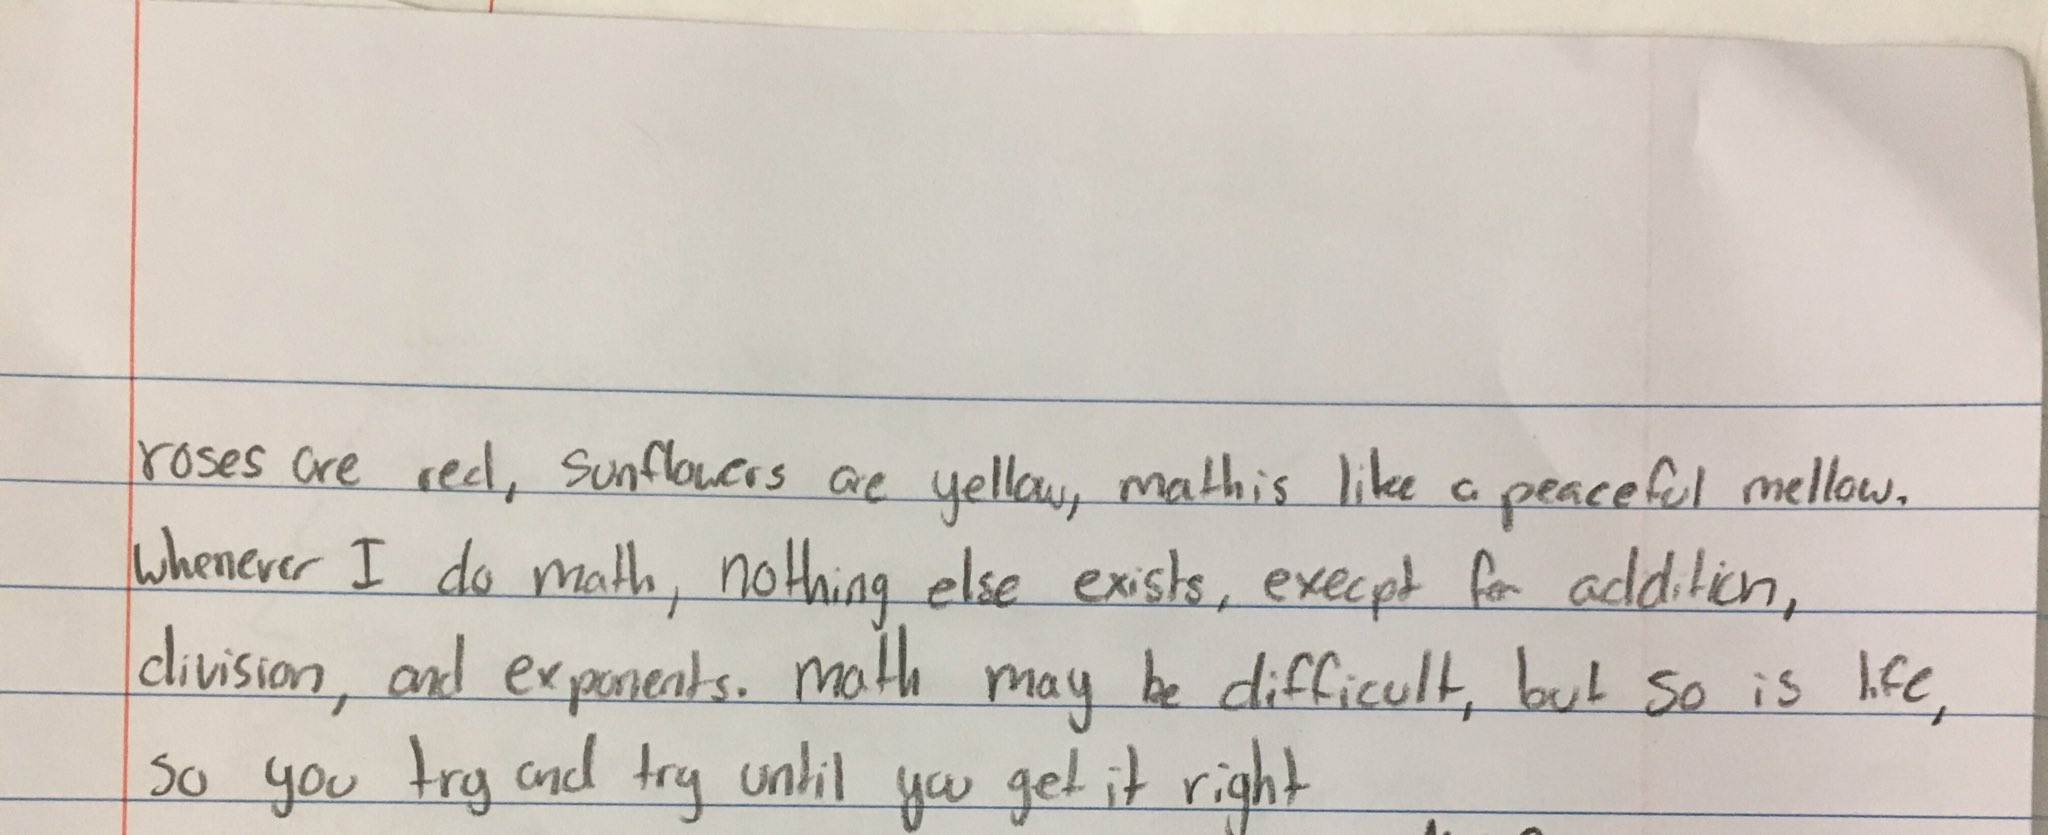 roses are red, sunflowers are yellow, math is like a peaceful mellow.
Whenever I do math, nothing else exists, execpt for addition,
division, and exponents. math may be difficult, but so is life,
so you try and try until you get it right